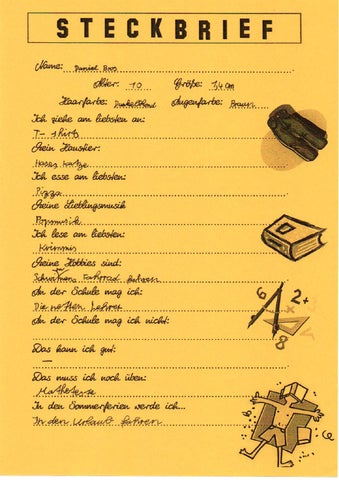 STECKBRIEF
Name: Daniel Bros
Alter: 10 Größe: 1,4 cm
Haarfarbe: Dunkelblond Augenfarbe: Braun
Ich ziehe am liebsten an:
T-Shirts
Mein Haustier:
Hase, Katze
Ich esse am liebsten:
Pizza
Meine Lieblingsmusik
Popmusik
Ich lese am liebsten:
Krimmis
Meine Hobbies sind:
Fahrrad fahren
In der Schule mag ich:
Die netten Lehrer
In der Schule mag ich nicht:
Das kann ich gut:
–
Das muss ich noch üben:
Mathe
In den Sommerferien werde ich...
In den Urlaub fahren
6 2+
x 2
8